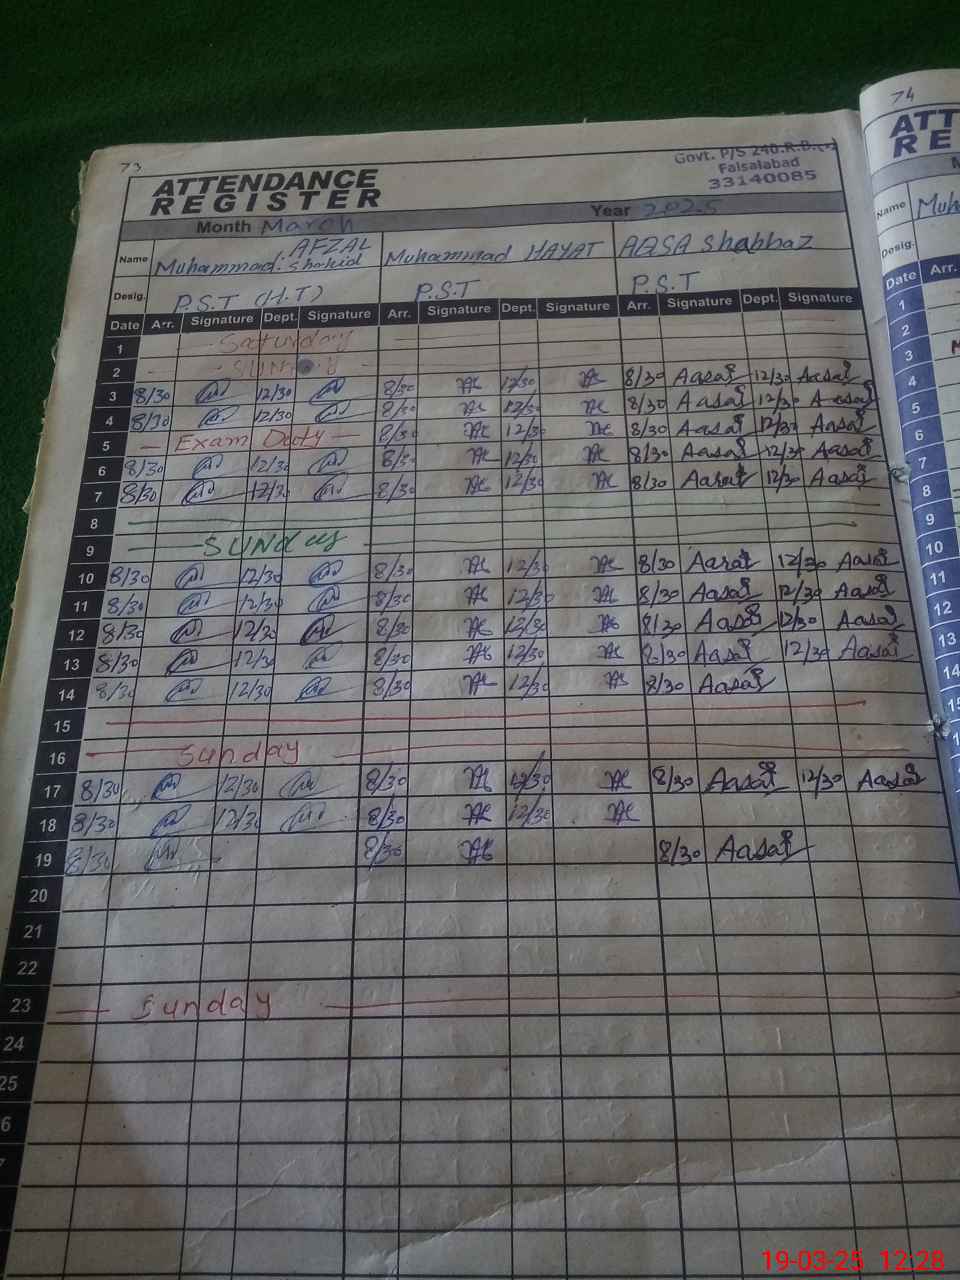 73
ATTENDANCE
REGISTER
Govt. P/S 240.R.B.
Faisalabad
33140085
Month March Year 2025
Name Muhammad AFZAL Shahid Muhammad HAYAT AQSA Shahbaz
Desig. P.S.T (H.T) P.S.T P.S.T
Date Arr. Signature Dept. Signature Arr. Signature Dept. Signature Arr. Signature Dept. Signature
1 Saturday
2
3 8/30 12/30 8/30 12/30 8/30 Aasai 12/30 Aasai
4 8/30 12/30 8/30 12/30 8/30 Aasai 12/30 Aasai
5 Exam Duty 8/30 12/30 8/30 Aasai 12/30 Aasai
6 8/30 12/30 8/30 12/30 8/30 Aasai 12/30 Aasai
7 8/30 12/30 8/30 12/30 8/30 Aasai 12/30 Aasai
8
9 SUNday
10 8/30 12/30 8/30 12/30 8/30 Aasai 12/30 Aasai
11 8/30 12/30 8/30 12/30 8/30 Aasai 12/30 Aasai
12 8/30 12/30 8/30 12/30 8/30 Aasai 12/30 Aasai
13 8/30 12/30 8/30 12/30 8/30 Aasai 12/30 Aasai
14 8/30 12/30 8/30 12/30 8/30 Aasai
15
16 Sunday
17 8/30 12/30 8/30 12/30 8/30 Aasai 12/30 Aasai
18 8/30 12/30 8/30 12/30
19 8/30 8/30 8/30 Aasai
20
21
22
23 Sunday
24
25
6
7
74
ATT
RE
Name Muh
Desig.
Date Arr.
1
2
3
4
5
6
7
8
9
10
11
12
13
14
15
19-03-25 12:28